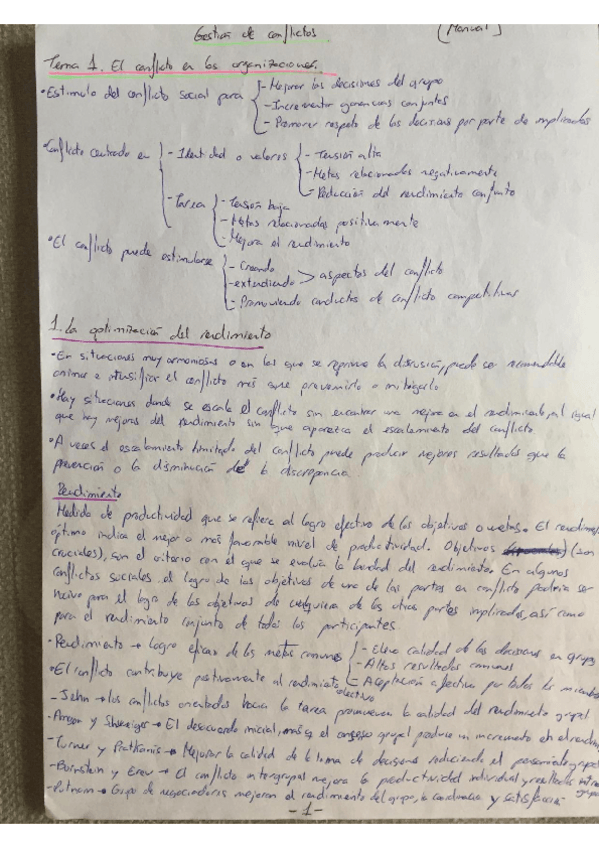 Gestión de conflictos. (Manual)
Tema 1. El conflicto en las organizaciones.
• Estimulo del conflicto social para - Mejorar las decisiones del grupo
- Incrementar ganancias conjuntas
- Promover respeto de las decisiones por parte de implicados
• Conflicto centrado en - Identidad o valores - Tensión alta
- Metas relacionadas negativamente
- Reducción del rendimiento conjunto
- Tarea - Tensión baja
- Metas relacionadas positivamente
- Mejora el rendimiento
• El conflicto puede estimularse - Creando
- extendiendo > aspectos del conflicto
- Promoviendo conductas de conflicto competitivas
1. La optimización del rendimiento
• En situaciones muy armoniosas o en las que se reprime la discusión, puede ser recomendable
animar e intensificar el conflicto más que prevenirlo o mitigarlo
• Hay situaciones donde se escala el conflicto sin encontrar una mejora en el rendimiento, al igual
que hay mejoras del rendimiento sin que aparezca el escalamiento del conflicto
• A veces el escalamiento limitado del conflicto puede producir mejores resultados que la
prevención o la disminución de la discrepancia
Rendimiento
Medida de productividad que se refiere al logro efectivo de los objetivos o metas. El rendimiento
óptimo indica el mejor o más favorable nivel de productividad. Objetivos (son
cruciales), son el criterio con el que se evalúa la bondad del rendimiento. En algunos
conflictos sociales el logro de los objetivos de una de las partes en conflicto podría ser
nocivo para el logro de los objetivos de cualquiera de las otras partes implicadas, así como
para el rendimiento conjunto de todos los participantes
• Rendimiento → Logro eficaz de las metas comunes - Eleva calidad de las decisiones en grupo
- Altos resultados comunes
- Aceptación afectiva por todos los miembros
• El conflicto contribuye positivamente al rendimiento colectivo
- Jehn → los conflictos orientados hacia la tarea promueven la calidad del rendimiento grupal
- Amason y Schweiger → El desacuerdo inicial, más q el consenso grupal produce un incremento en el rendim
- Turner y Pratkanis → Mejorar la calidad de la toma de decisiones reduciendo el pensamiento grupal
- Bornstein y Erev → El conflicto intergrupal mejora la productividad individual y resultados intra
grupo
- Putnam → Grupo de negociadores mejoran el rendimiento del grupo, la y satisfacción
- 1 -